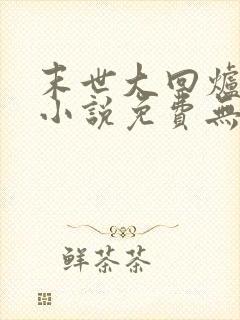 末世大回爐
小說免費無
鮮茶茶